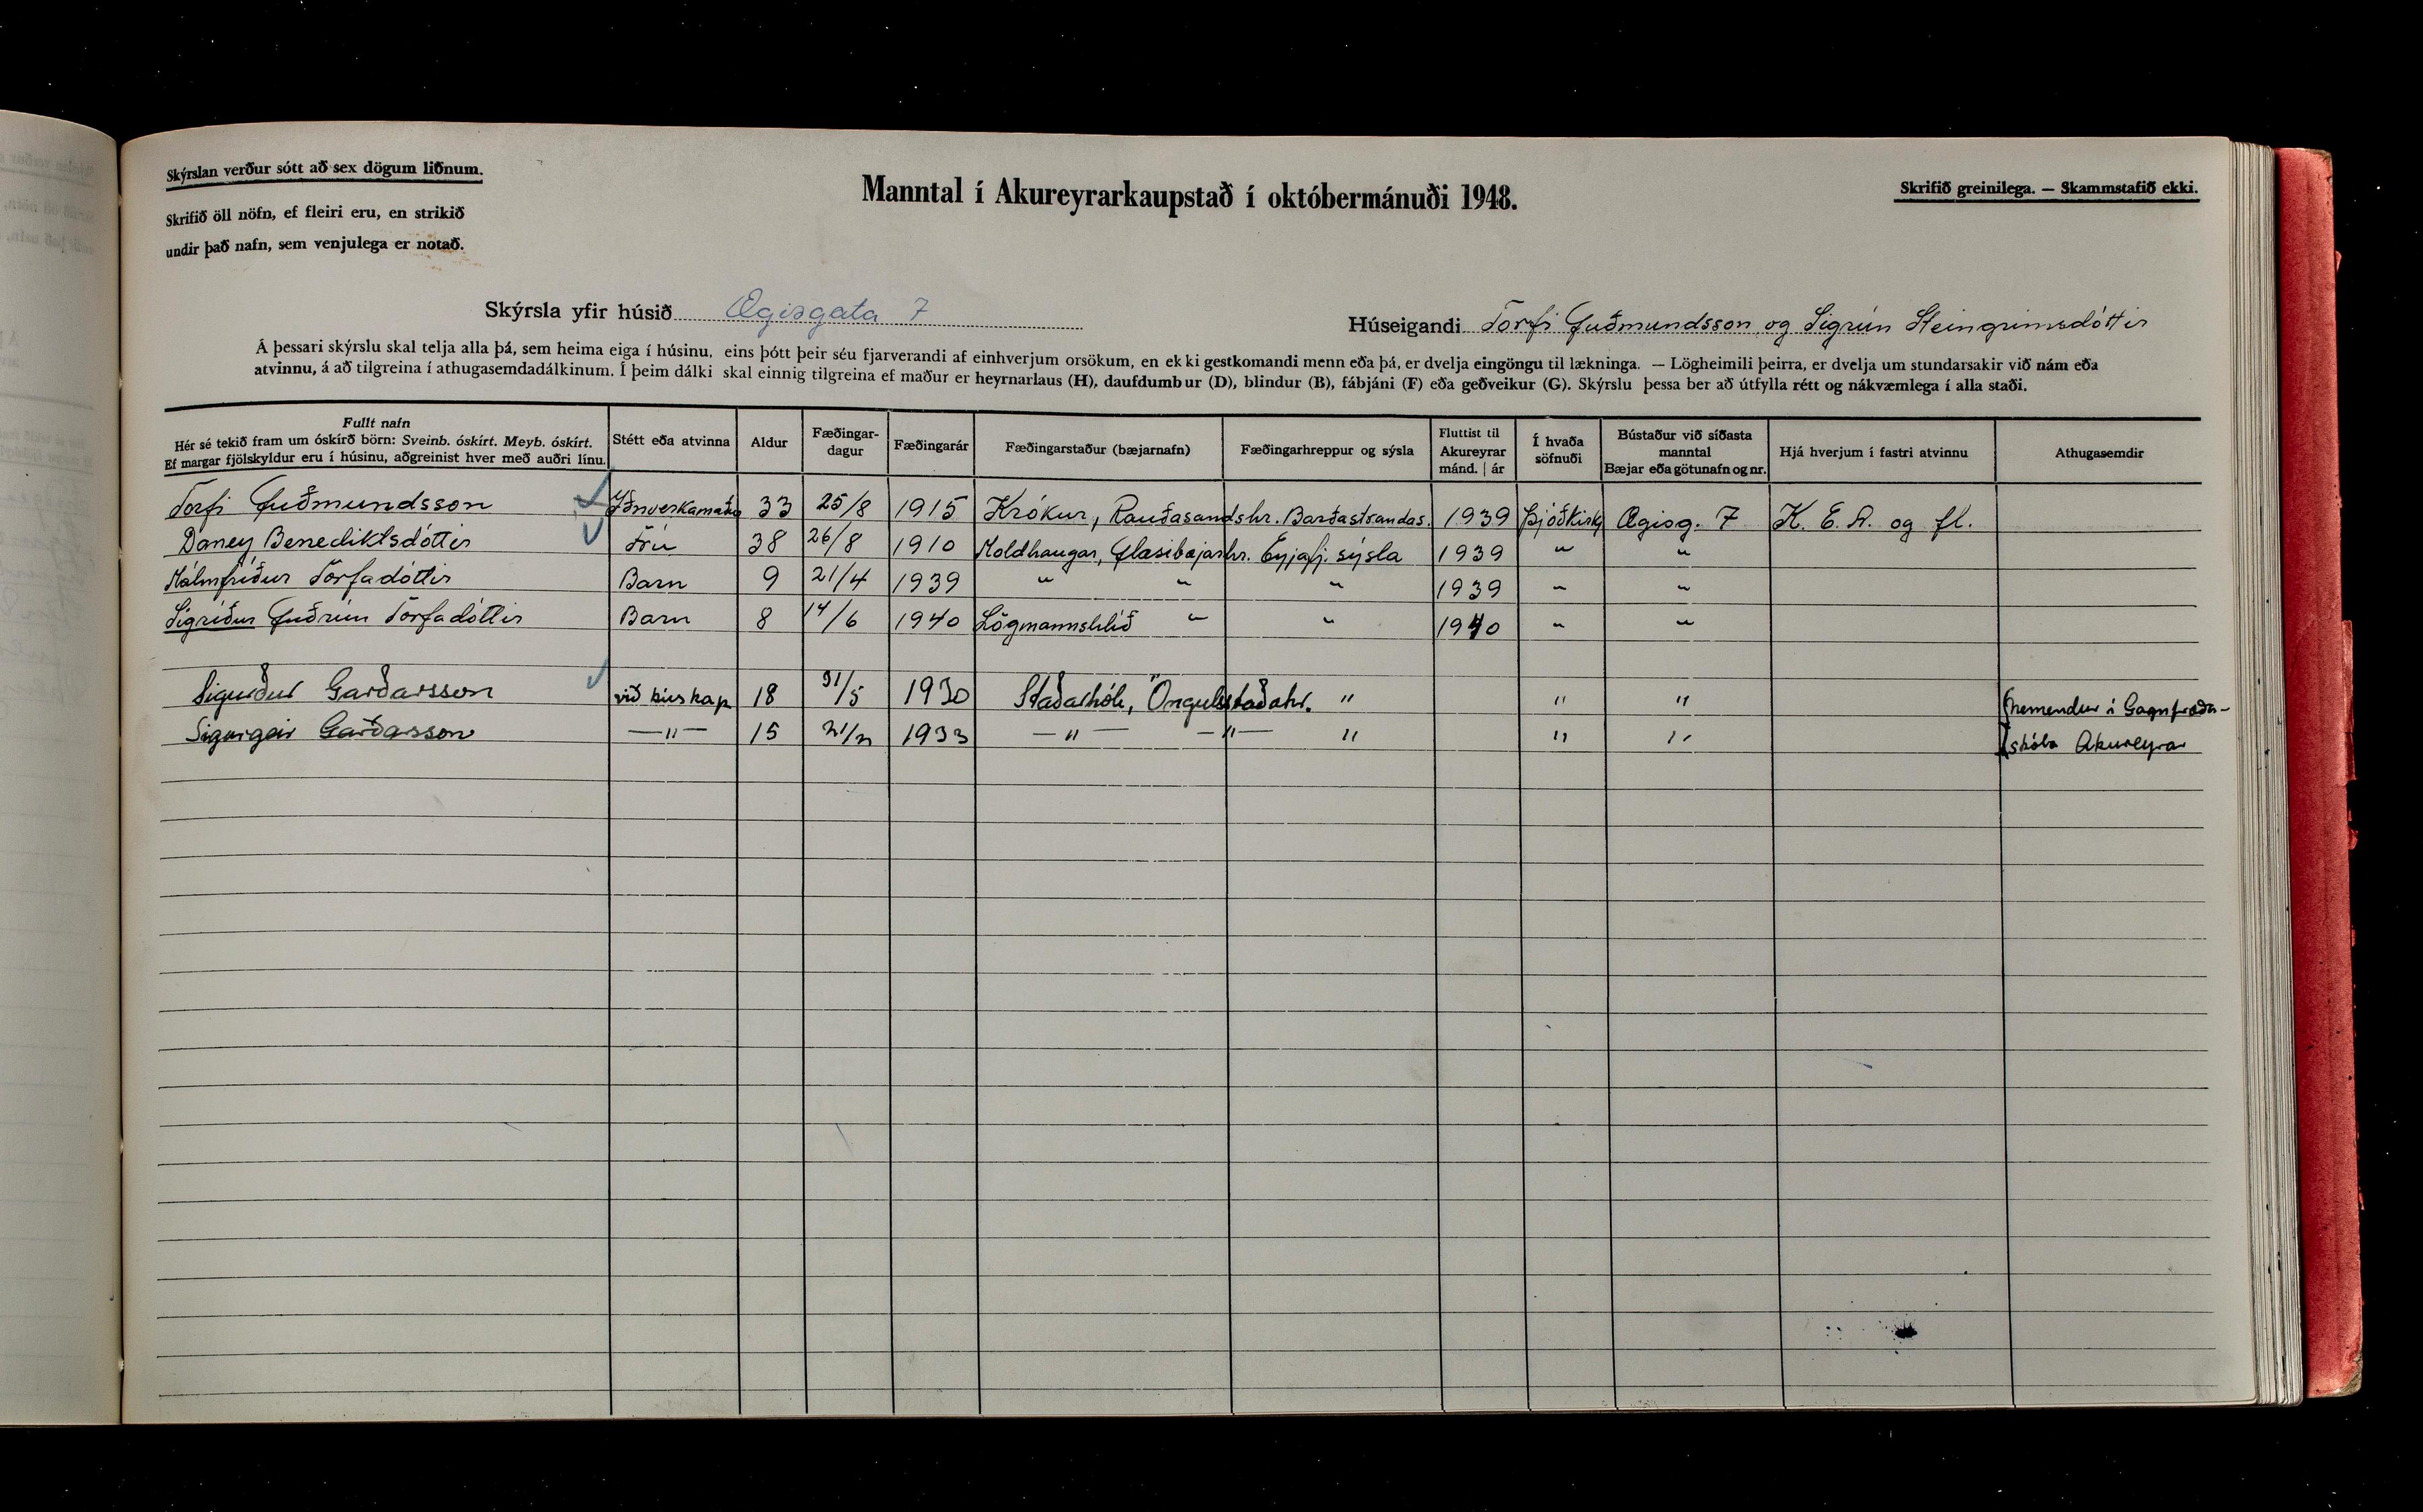 Skýrslan verður sótt að sex dögum liðnum.
Skrifið öll nöfn, ef fleiri eru, en strikið
undir það nafn, sem venjulega er notað.
Manntal í Akureyrarkaupstað í októbermánuði 1948.
Skrifið greinilega. — Skammstafið ekki.
Skýrsla yfir húsið Ægisgata 7
Húseigandi Torfi Guðmundsson og Sigrún Steingrímsdóttir
Á þessari skýrslu skal telja alla þá, sem heima eiga í húsinu, eins þótt þeir séu fjarverandi af einhverjum orsökum, en ekki gestkomandi menn eða þá, er dvelja eingöngu til lækninga. — Lögheimili þeirra, er dvelja um stundarsakir við nám eða
atvinnu, á að tilgreina í athugasemdadálkinum. Í þeim dálki skal einnig tilgreina ef maður er heyrnarlaus (H), daufdumbur (D), blindur (B), fábjáni (F) eða geðveikur (G). Skýrslu þessa ber að útfylla rétt og nákvæmlega í alla staði.
Fullt nafn
Hér sé tekið fram um óskírð börn: Sveinb. óskírt. Meyb. óskírt.
Ef margar fjölskyldur eru í húsinu, aðgreinist hver með auðri línu.
Stétt eða atvinna
Aldur
Fæðingar-
dagur
Fæðingarár
Fæðingarstaður (bæjarnafn)
Fæðingarhreppur og sýsla
Fluttist til
Akureyrar
mánd. | ár
Í hvaða
söfnuði
Bústaður við síðasta
manntal
Bæjar eða götunafn og nr.
Hjá hverjum í fastri atvinnu
Athugasemdir
Torfi Guðmundsson Iðnverkamaður 33 25/8 1915 Krókur, Rauðasandshr. Barðastrandas. 1939 Þjóðkirkj Ægisg. 7 K. E. A. og fl.
Daney Benediktsdóttir Frú 38 26/8 1910 Moldhaugar, Glæsibæjarhr. Eyjafj. sýsla 1939 " "
Málmfríður Torfadóttir Barn 9 21/4 1939 " " " 1939 " "
Sigríður Guðrún Torfadóttir Barn 8 14/6 1940 Lögmannshlíð " " 1940 " "
Sigurður Garðarsson við búskap 18 31/5 1930 Staðarhóli, Öngulsstaðahr. " " " nemendur í Gagnfræða-
Sigurgeir Garðarsson —"— 15 1933 —"— —"— " " " skóla Akureyrar